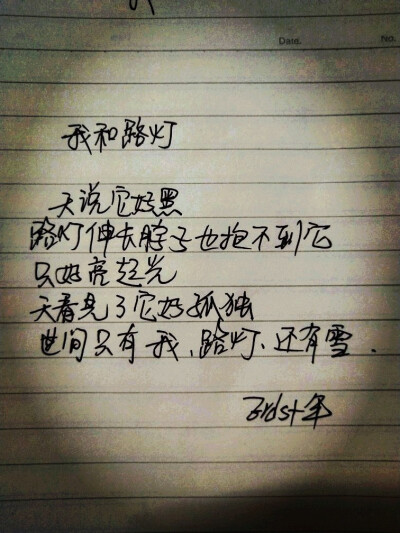 Date.
No.
我和路灯
天说它好黑
路灯伸长脖子也抱不到它
只好亮起光
天看见了它好孤独
世间只有我、路灯、还有雪.